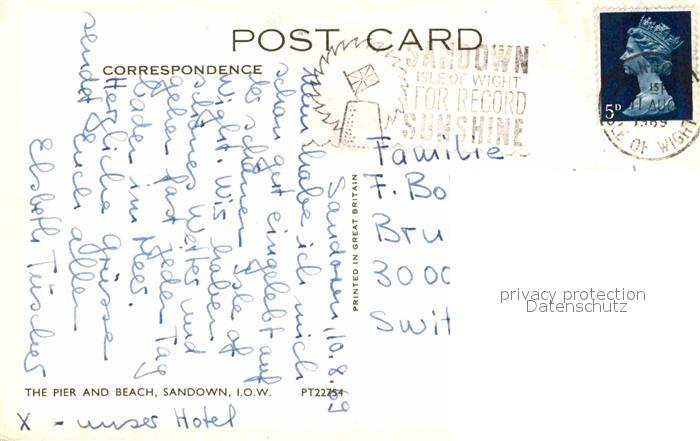 POST CARD
CORRESPONDENCE
SANDOWN
ISLE OF WIGHT
FOR RECORD
SUNSHINE
5D
11 AUG
1969
ISLE OF WIGHT
Sandown, 10.8.69
Nun habe ich mich
schon gut eingelebt auf
der schönen Isle of
Wight. Wir haben
schönes Wetter und
gehen fast jeden Tag
baden im Meer.
Herzliche Grüsse
sendet Euch allen
Elsbeth Tüscher
PRINTED IN GREAT BRITAIN
Familie
F. Bo
Bru
3000
Swit
privacy protection
Datenschutz
THE PIER AND BEACH, SANDOWN, I.O.W. PT22754
X - unser Hotel